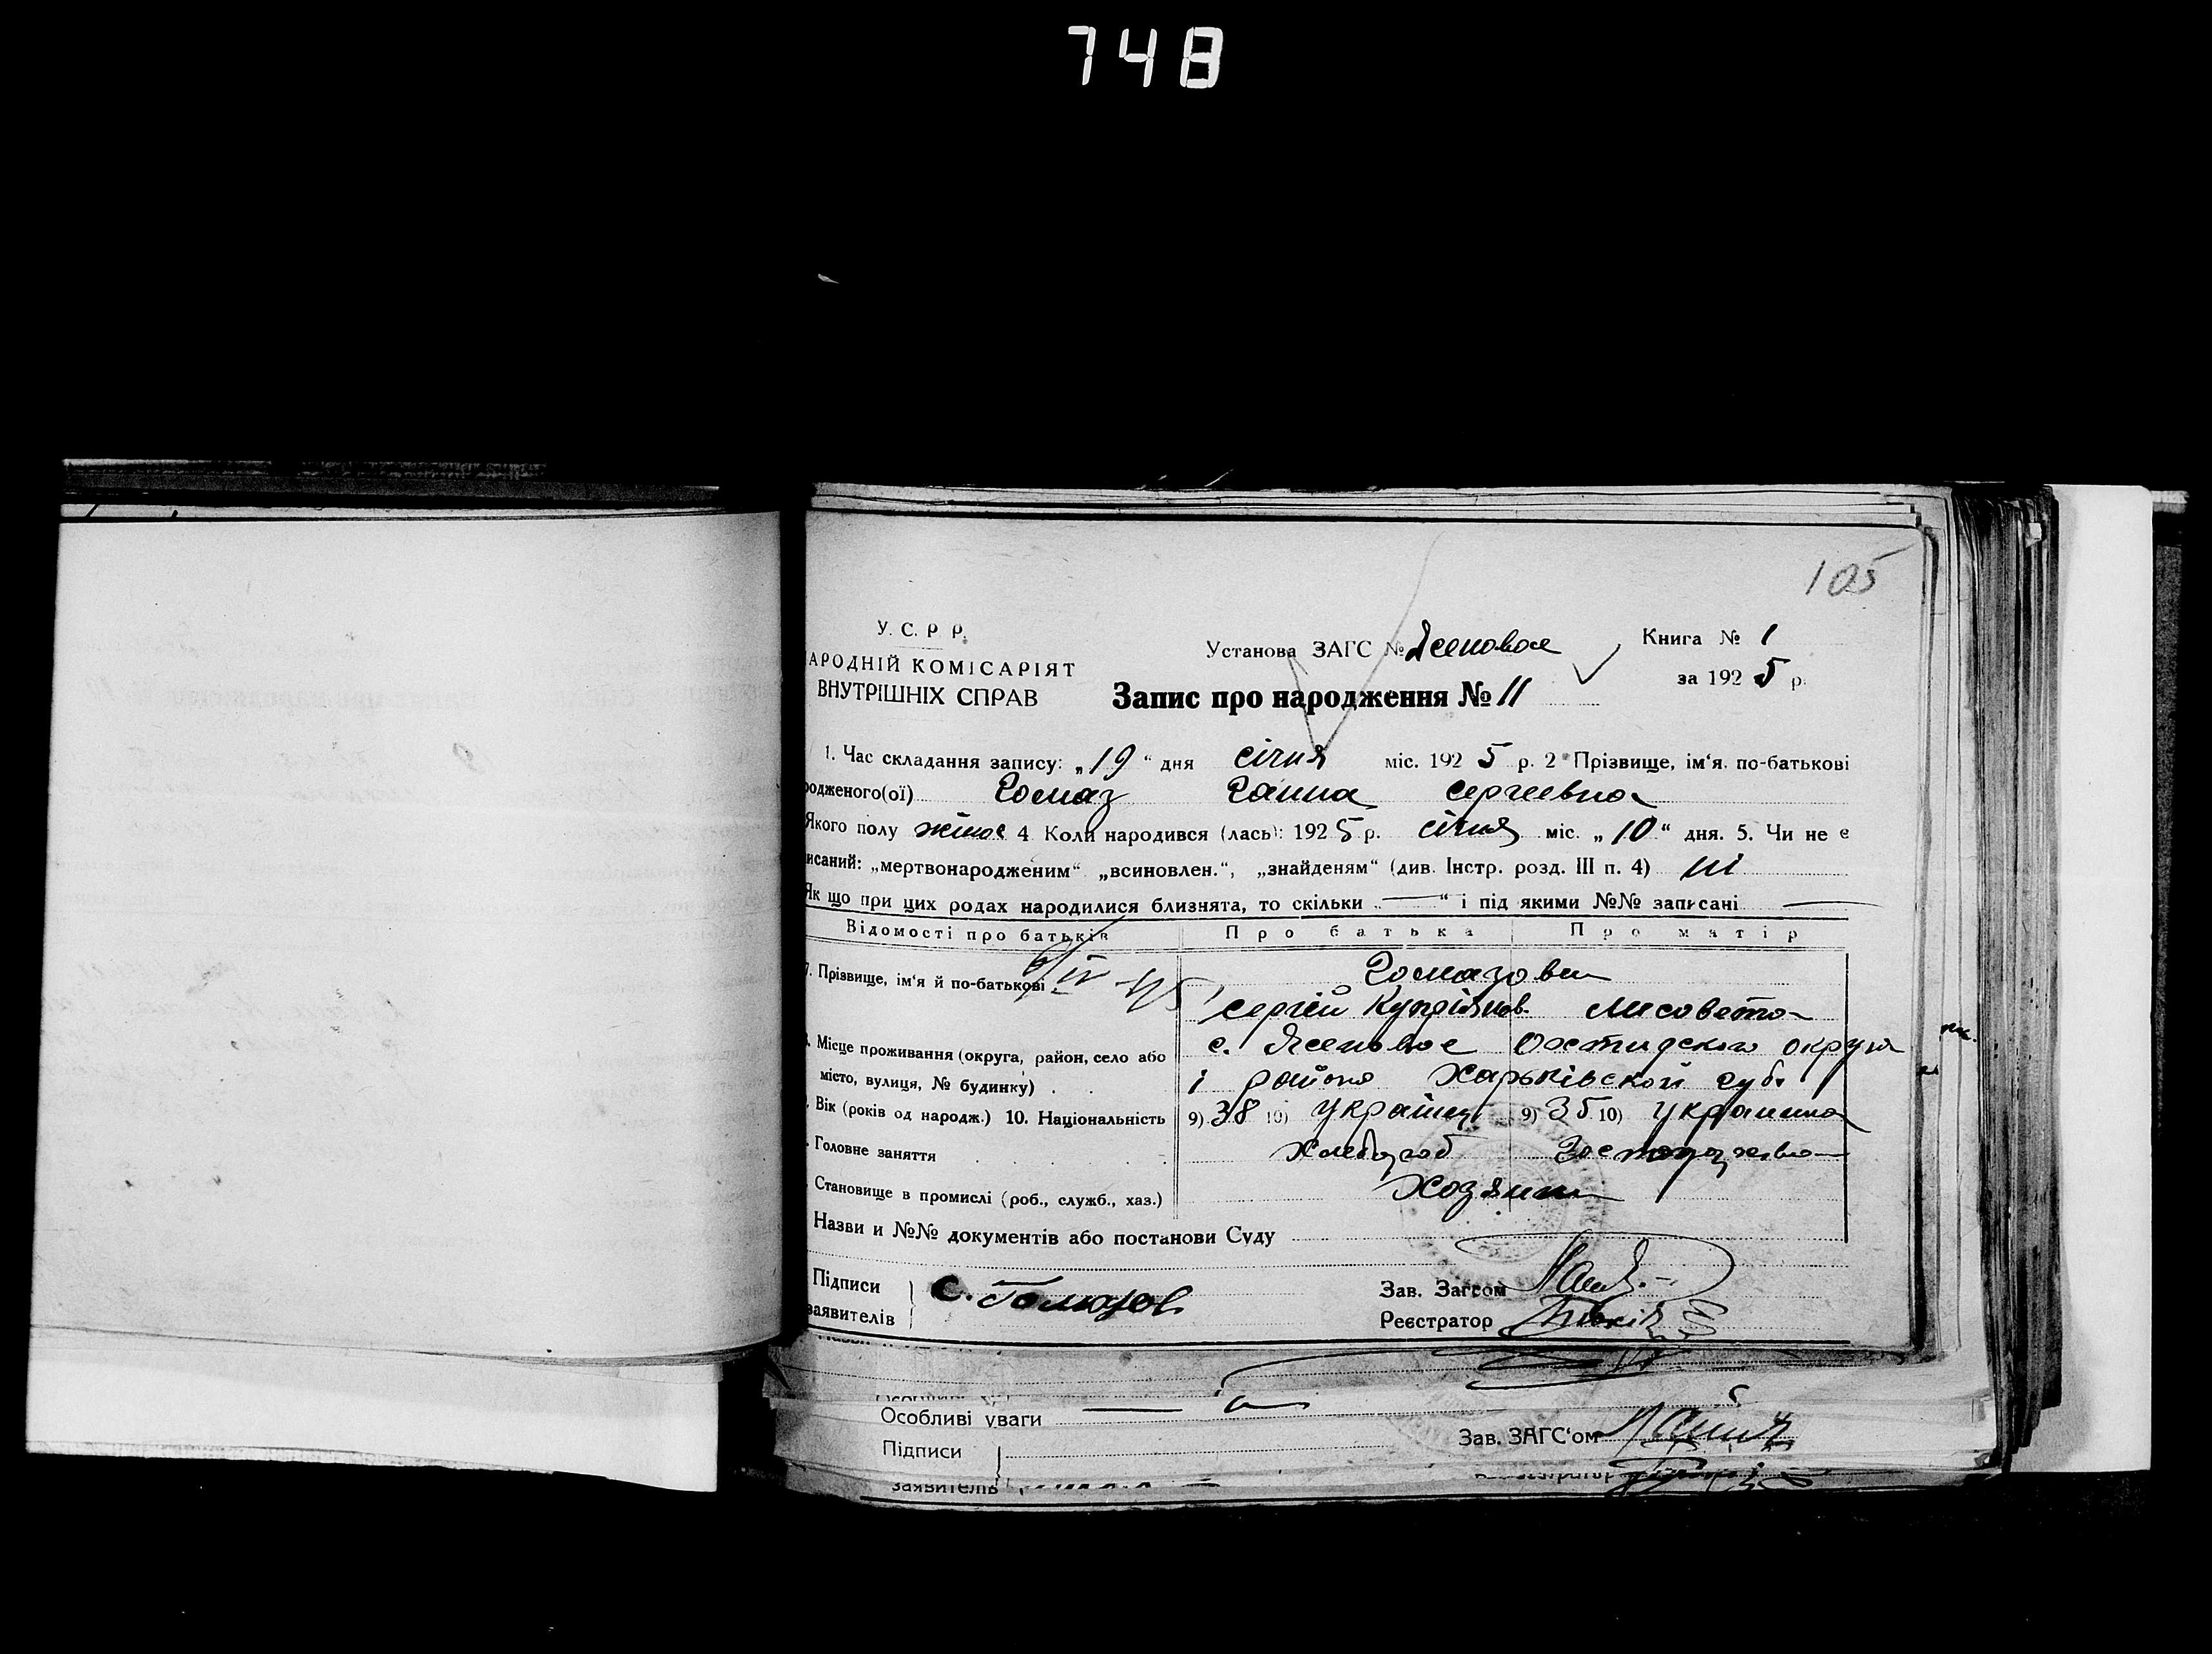 748
105
У. С. Р. Р.
АРОДНІЙ КОМІСАРІЯТ
ВНУТРІШНІХ СПРАВ
Установа ЗАГС № Ясеновое
Книга № 1
за 1925 р.
Запис про народження № 11
1. Час складання запису: „19“ дня січня міс. 1925 р. 2 Прізвище, ім‘я, по-батькові
родженого(ої) Гомаз Ганна Сергеевна
Якого полу жіноє 4 Коли народився (лась): 1925 р. січня міс. „10“ дня. 5. Чи не є
исаний: „мертвонародженим“ „всиновлен.“, „знайденям“ (див. Інстр. розд. III п. 4) ні
Як що при цих родах народилися близнята, то скільки „—“ і під якими №№ записані —
Відомості про батьків Про батька Про матір
7. Прізвище, ім‘я й по-батькові Гомазови
Сергій Купріянов. Лисовета
. Місце проживання (округа, район, село або с. Ясеновое округа
місто, вулиця, № будинку) і района Харьківской губ.
. Вік (років од народж.) 10. Національність 9) 38 10) Українец 9) 35 10) Украинка
. Головне заняття Хлебороб
. Становище в промислі (роб., служб., хаз.) Хозяин
Назви и №№ документів або постанови Суду
Підписи
заявителів
С. Гомазов
Зав. Загсом
Реєстратор
Особливі уваги —
Підписи
Зав. ЗАГС‘ом
заявителів